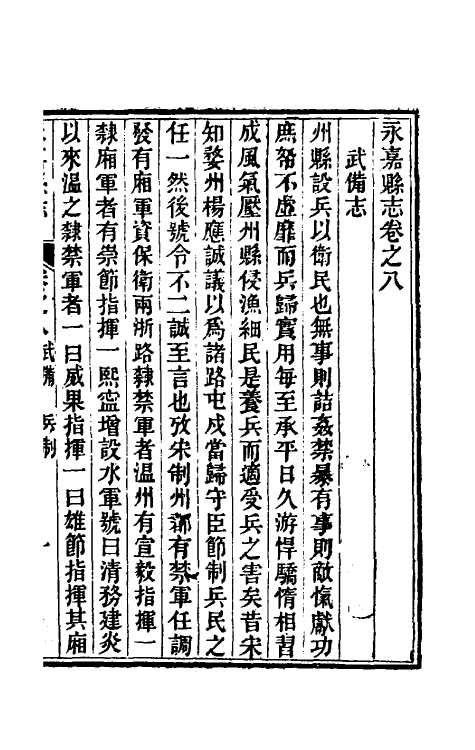 永嘉縣志卷之八
武備志
州縣設兵以衛民也無事則詰姦禁暴有事則敵愾獻功
庶帑不虛靡而兵歸實用每至承平日久游悍驕惰相習
成風氣壓州縣侵漁細民是養兵而適受兵之害矣昔宋
知婺州楊應誠議以爲諸路屯戍當歸守臣節制兵民之
任一然後號令不二誠至言也攷宋制州郡有禁軍任調
發有廂軍資保衛兩浙路隸禁軍者温州有宣毅指揮一
隸廂軍者有崇節指揮一熙寧增設水軍號曰清務建炎
以來温之隸禁軍者一曰威果指揮一曰雄節指揮其廂
卷之八武備 兵制 一